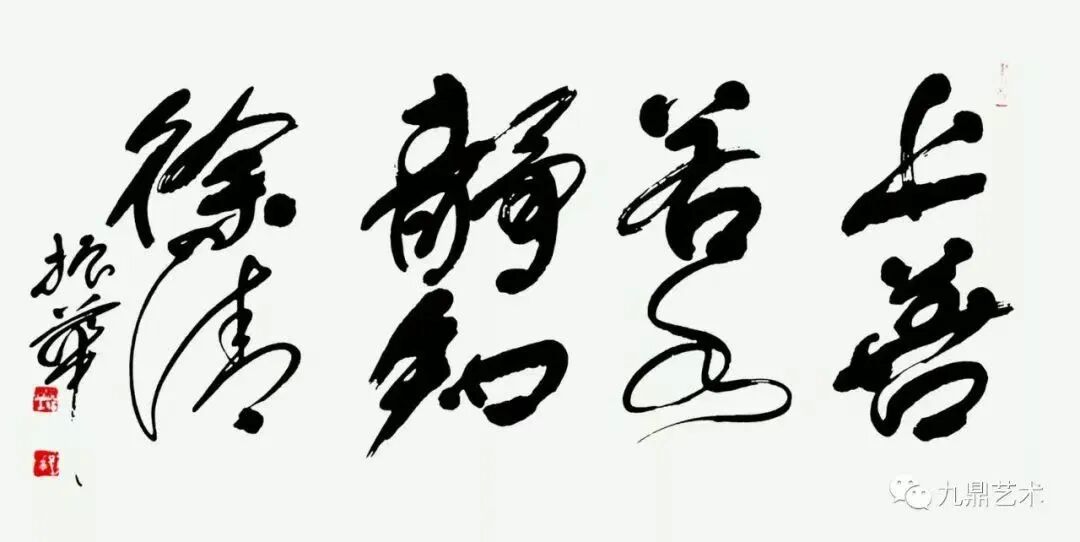 上善
若水
静知
徐清
振华
九鼎艺术